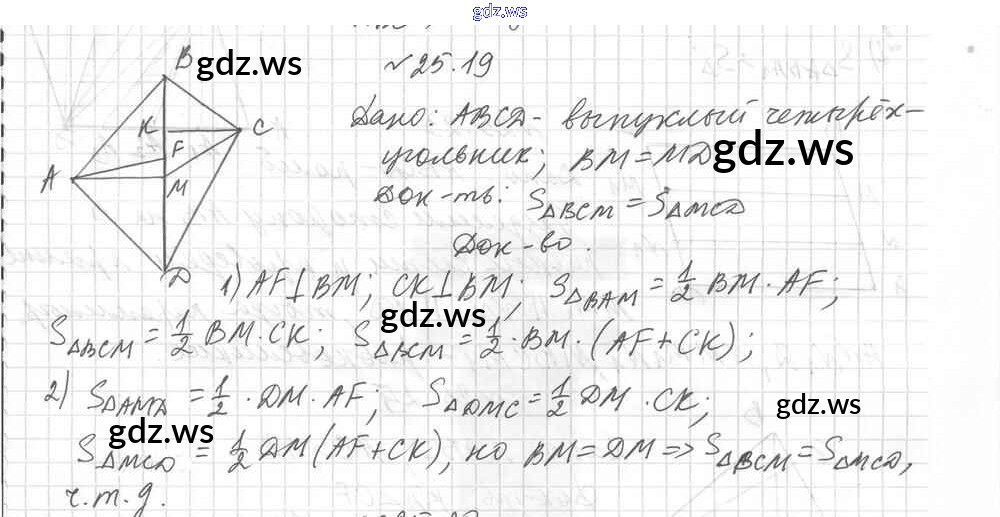 gdz.ws
№25.19
B
K
C
F
A
M
D
gdz.ws
Дано: ABCD - выпуклый четырёх-
угольник; BM = MD
gdz.ws
Док-ть: S△BCM = S△MCD
Док-во.
1) AF⊥BM; CK⊥BM; S△BAM = 1/2 BM · AF;
gdz.ws
S△BCM = 1/2 BM · CK; S△BCM = 1/2 · BM · (AF+CK);
2) S△AMD = 1/2 · DM · AF; S△DMC = 1/2 DM · CK;
gdz.ws
gdz.ws
S△MCD = 1/2 DM (AF+CK), но BM = DM => S△BCM = S△MCD,
ч.т.д.